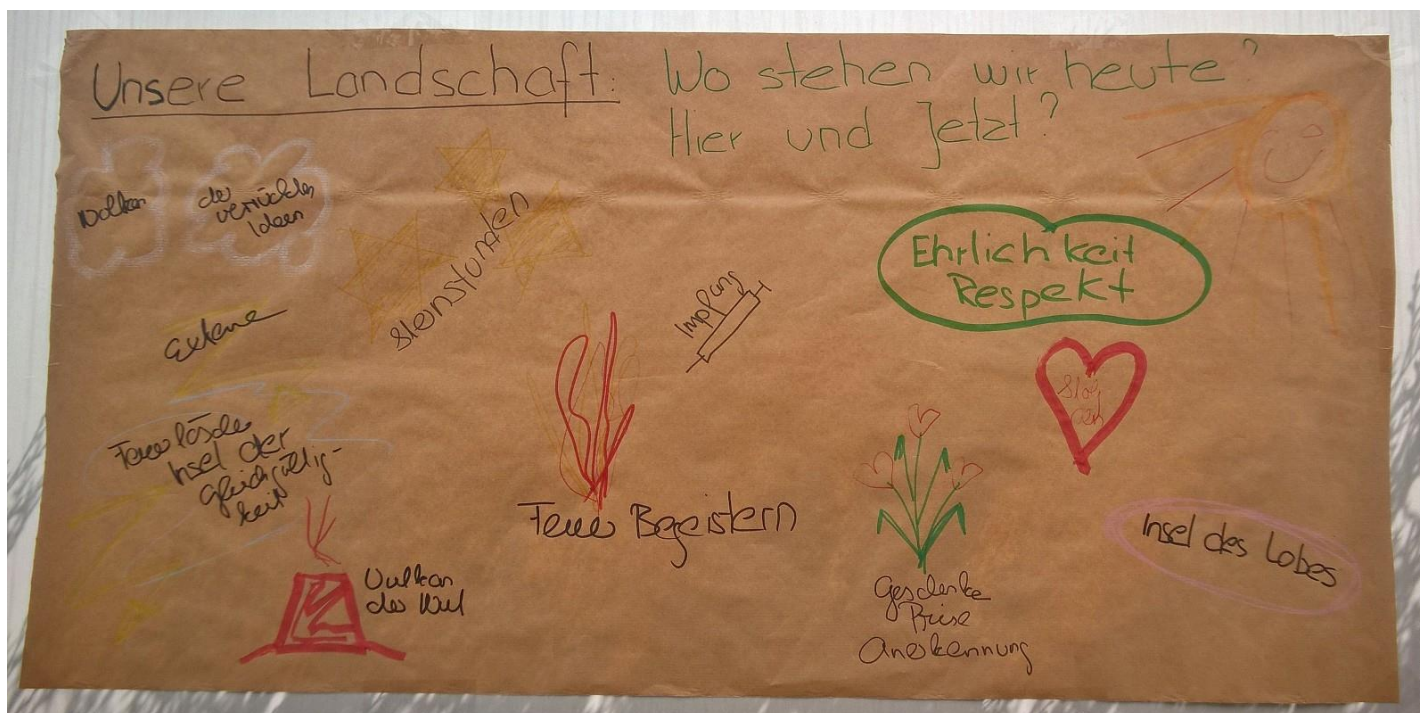 Unsere Landschaft: Wo stehen wir heute?
Hier und Jetzt?
Wolken
der
verrückten
Ideen
Sternstunden
Externe
Impfung
Ehrlichkeit
Respekt
Insel der
gleichgültig-
keit
Feuer Begeistern
Vulkan
der
Geschenke
Preise
Anerkennung
Insel des Lobes